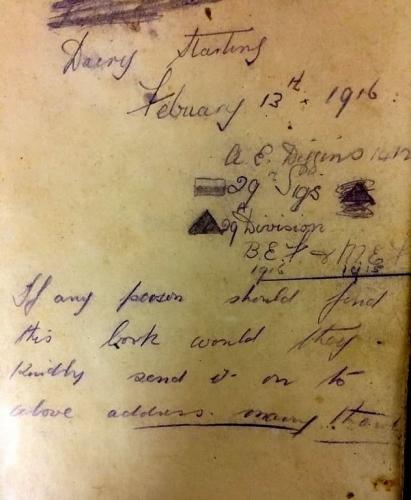 Dairy Starting
Febuary 13th. 1916.
A. E. Diggins
29th Sigs
29th Division
B.E.F & M.E.F
1916 1915
If any person should find
this book would they
Kindly send it on to
above address. many thank